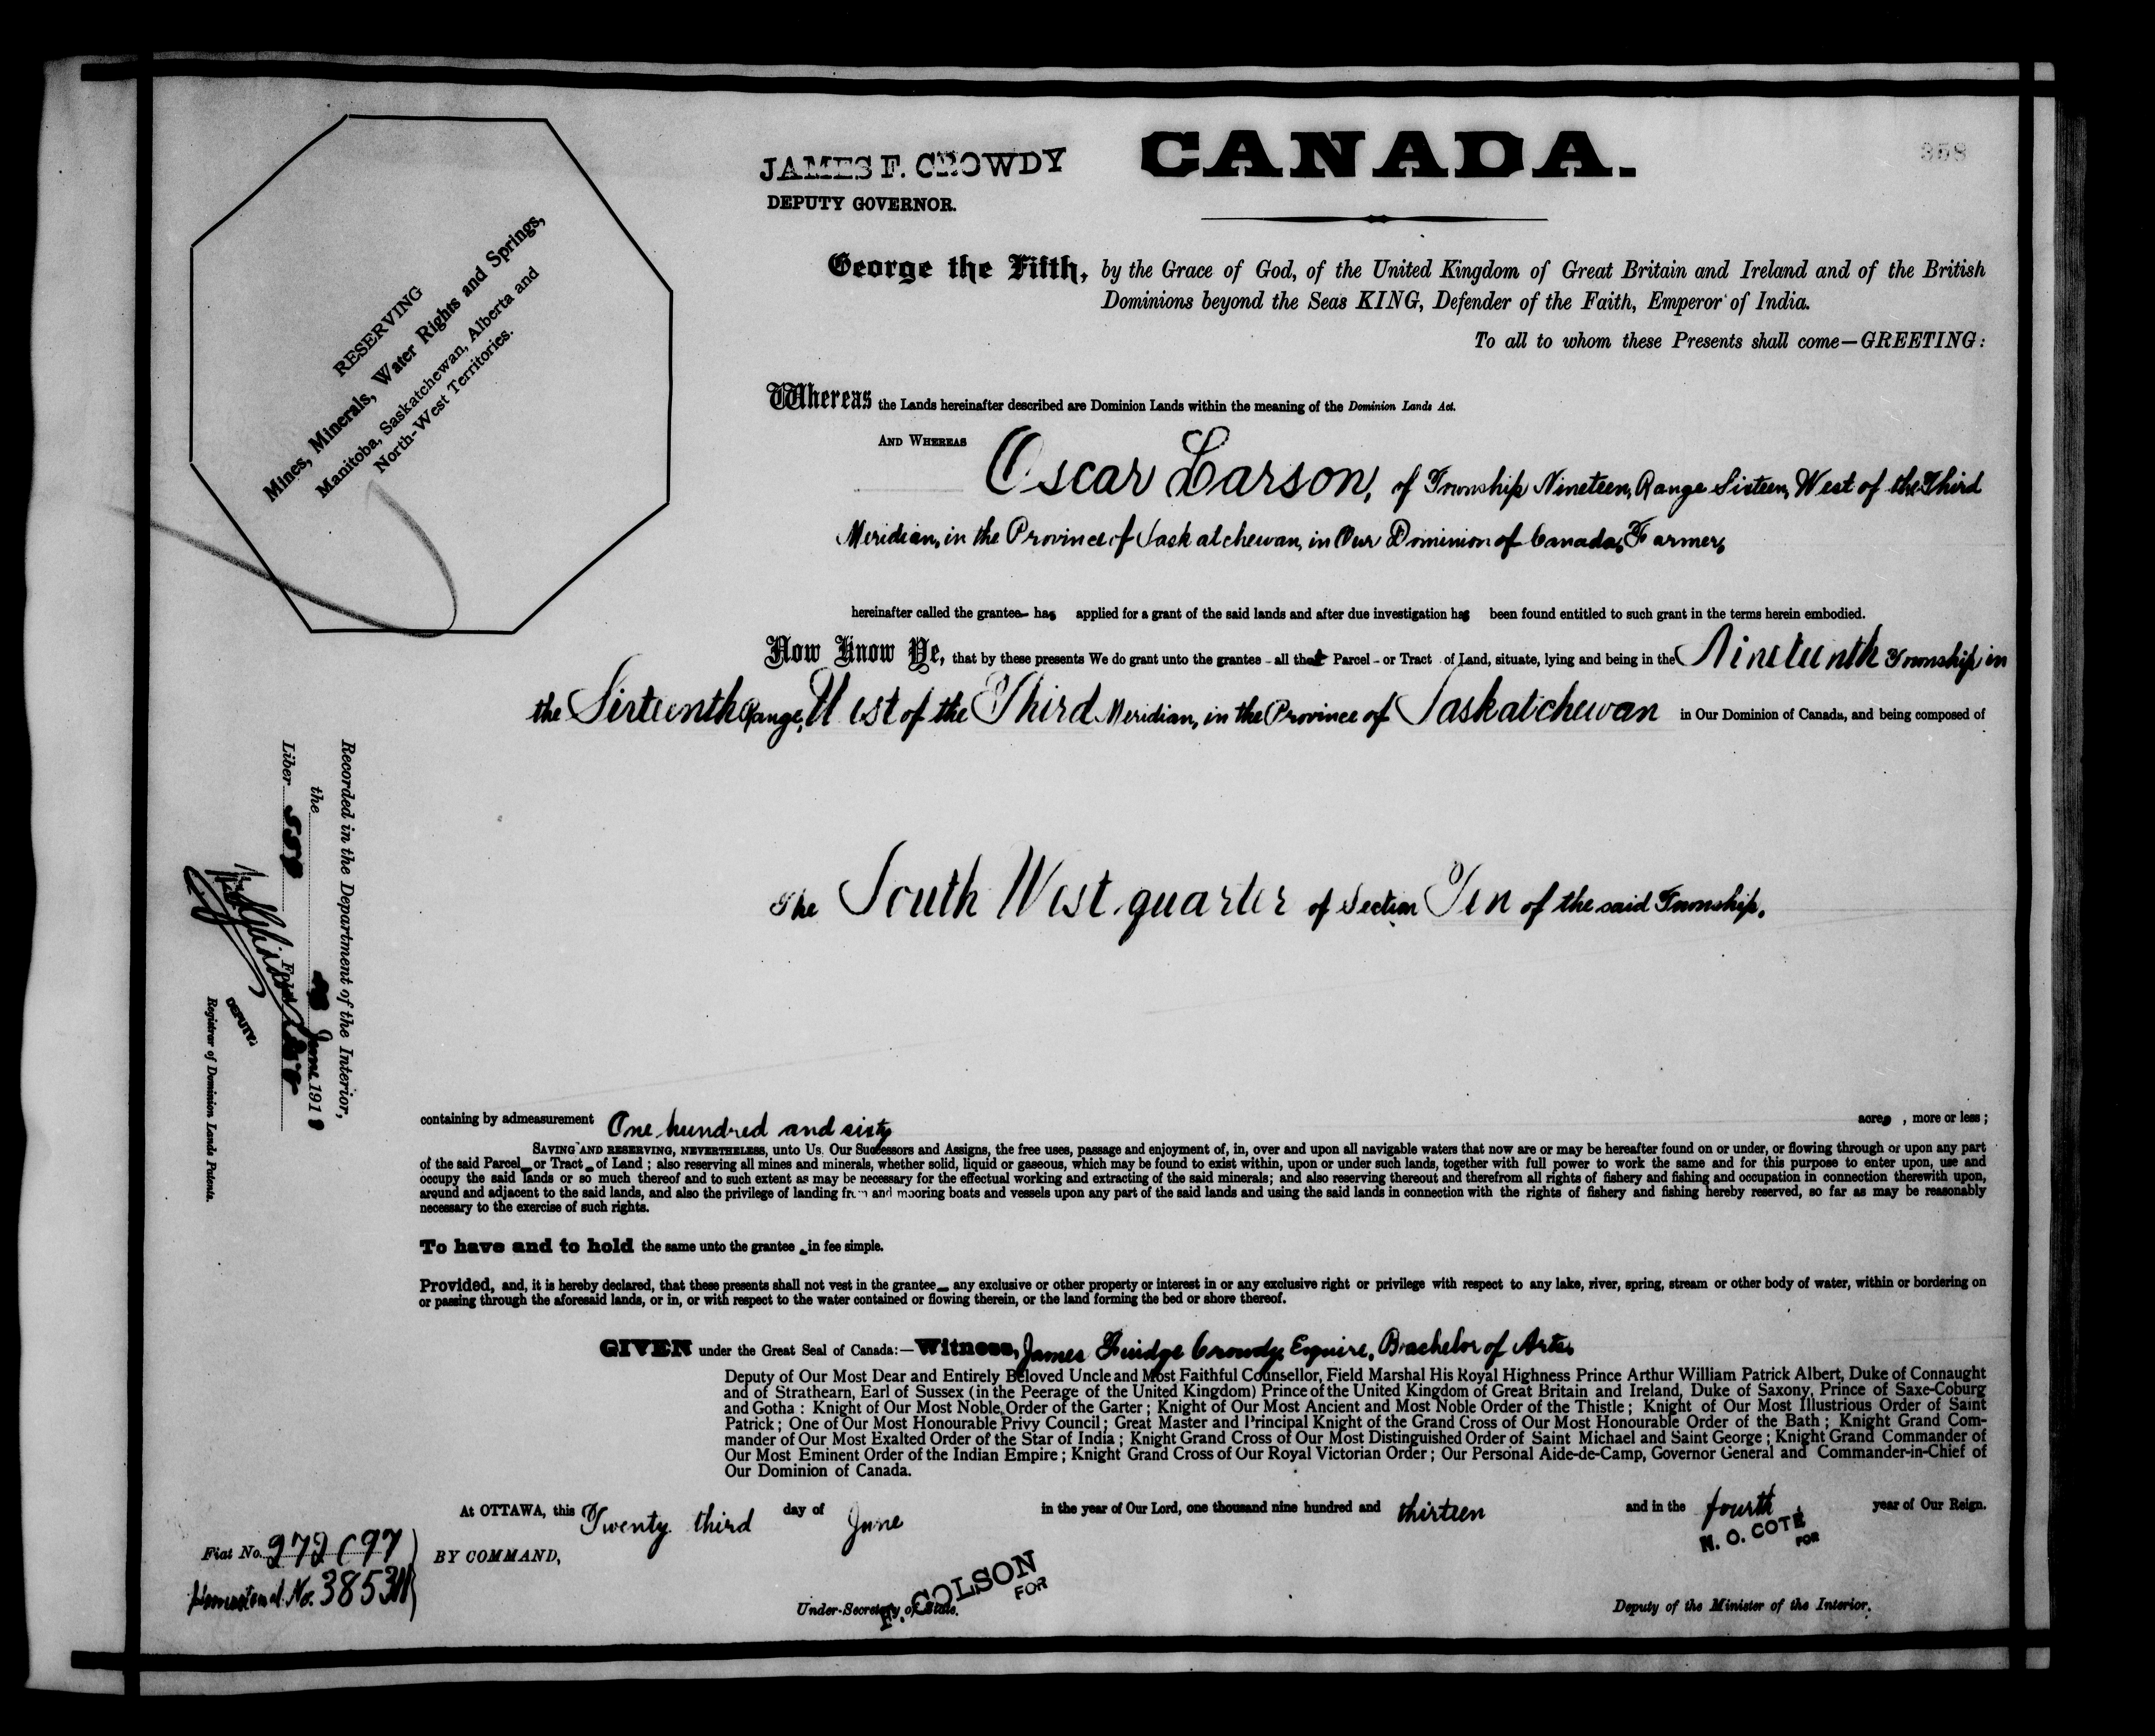 CANADA.
358
JAMES F. CROWDY
DEPUTY GOVERNOR.
RESERVING
Mines, Minerals, Water Rights and Springs,
Manitoba, Saskatchewan, Alberta and
North-West Territories.
George the Fifth, by the Grace of God, of the United Kingdom of Great Britain and Ireland and of the British
Dominions beyond the Seas KING, Defender of the Faith, Emperor of India.
To all to whom these Presents shall come—GREETING:
Whereas the Lands hereinafter described are Dominion Lands within the meaning of the Dominion Lands Act.
AND WHEREAS Oscar Larson, of Township Nineteen, Range Sixteen, West of the Third
Meridian, in the Province of Saskatchewan, in Our Dominion of Canada, Farmer,
hereinafter called the grantee has applied for a grant of the said lands and after due investigation has been found entitled to such grant in the terms herein embodied.
Now Know Ye, that by these presents We do grant unto the grantee - all that Parcel - or Tract of Land, situate, lying and being in the Nineteenth Township in
the Sixteenth Range, West of the Third Meridian, in the Province of Saskatchewan in Our Dominion of Canada, and being composed of
The South West quarter of Section Ten of the said Township.
Recorded in the Department of the Interior,
the June 191
Liber Folio
DEPUTY
Registrar of Dominion Lands Patents.
containing by admeasurement One hundred and sixty acres, more or less;
SAVING AND RESERVING, NEVERTHELESS, unto Us. Our Successors and Assigns, the free uses, passage and enjoyment of, in, over and upon all navigable waters that now are or may be hereafter found on or under, or flowing through or upon any part
of the said Parcel or Tract of Land; also reserving all mines and minerals, whether solid, liquid or gaseous, which may be found to exist within, upon or under such lands, together with full power to work the same and for this purpose to enter upon, use and
occupy the said lands or so much thereof and to such extent as may be necessary for the effectual working and extracting of the said minerals; and also reserving thereout and therefrom all rights of fishery and fishing and occupation in connection therewith upon,
around and adjacent to the said lands, and also the privilege of landing from and mooring boats and vessels upon any part of the said lands and using the said lands in connection with the rights of fishery and fishing hereby reserved, so far as may be reasonably
necessary to the exercise of such rights.
To have and to hold the same unto the grantee in fee simple.
Provided, and, it is hereby declared, that these presents shall not vest in the grantee any exclusive or other property or interest in or any exclusive right or privilege with respect to any lake, river, spring, stream or other body of water, within or bordering on
or passing through the aforesaid lands, or in, or with respect to the water contained or flowing therein, or the land forming the bed or shore thereof.
GIVEN under the Great Seal of Canada:—Witness, James Fuidge Crowdy, Esquire, Bachelor of Arts,
Deputy of Our Most Dear and Entirely Beloved Uncle and Most Faithful Counsellor, Field Marshal His Royal Highness Prince Arthur William Patrick Albert, Duke of Connaught
and of Strathearn, Earl of Sussex (in the Peerage of the United Kingdom) Prince of the United Kingdom of Great Britain and Ireland, Duke of Saxony, Prince of Saxe-Coburg
and Gotha: Knight of Our Most Noble Order of the Garter; Knight of Our Most Ancient and Most Noble Order of the Thistle; Knight of Our Most Illustrious Order of Saint
Patrick; One of Our Most Honourable Privy Council; Great Master and Principal Knight of the Grand Cross of Our Most Honourable Order of the Bath; Knight Grand Com-
mander of Our Most Exalted Order of the Star of India; Knight Grand Cross of Our Most Distinguished Order of Saint Michael and Saint George; Knight Grand Commander of
Our Most Eminent Order of the Indian Empire; Knight Grand Cross of Our Royal Victorian Order; Our Personal Aide-de-Camp, Governor General and Commander-in-Chief of
Our Dominion of Canada.
At OTTAWA, this Twenty third day of June in the year of Our Lord, one thousand nine hundred and thirteen and in the fourth year of Our Reign.
N. O. COTÉ
FOR
Fiat No.
BY COMMAND,
Homestead No.
COLSON
FOR
Under-Secretary of State.
Deputy of the Minister of the Interior.